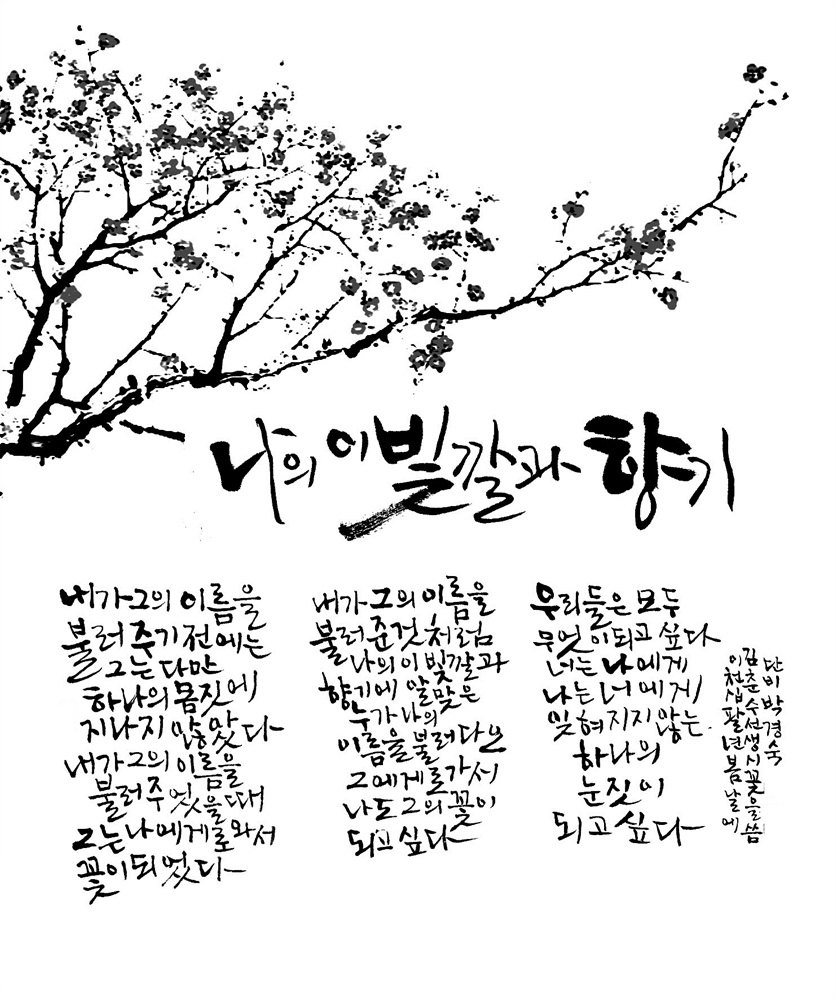 나의 이 빛깔과 향기
내가 그의 이름을
불러 주기 전에는
그는 다만
하나의 몸짓에
지나지 않았다
내가 그의 이름을
불러 주었을 때
그는 나에게로 와서
꽃이 되었다
내가 그의 이름을
불러 준 것처럼
나의 이 빛깔과
향기에 알맞은
누가 나의
이름을 불러다오
그에게로 가서
나도 그의 꽃이
되고 싶다
우리들은 모두
무엇이 되고 싶다
너는 나에게
나는 너에게
잊혀지지 않는
하나의
눈짓이
되고 싶다
이천십팔년 봄날에
김춘수 선생 시 꽃을 씀
단비 박경숙